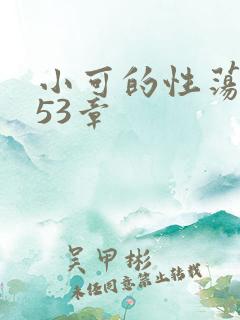 小可的性荡
53章
吴甲彬
未任同意禁止转载